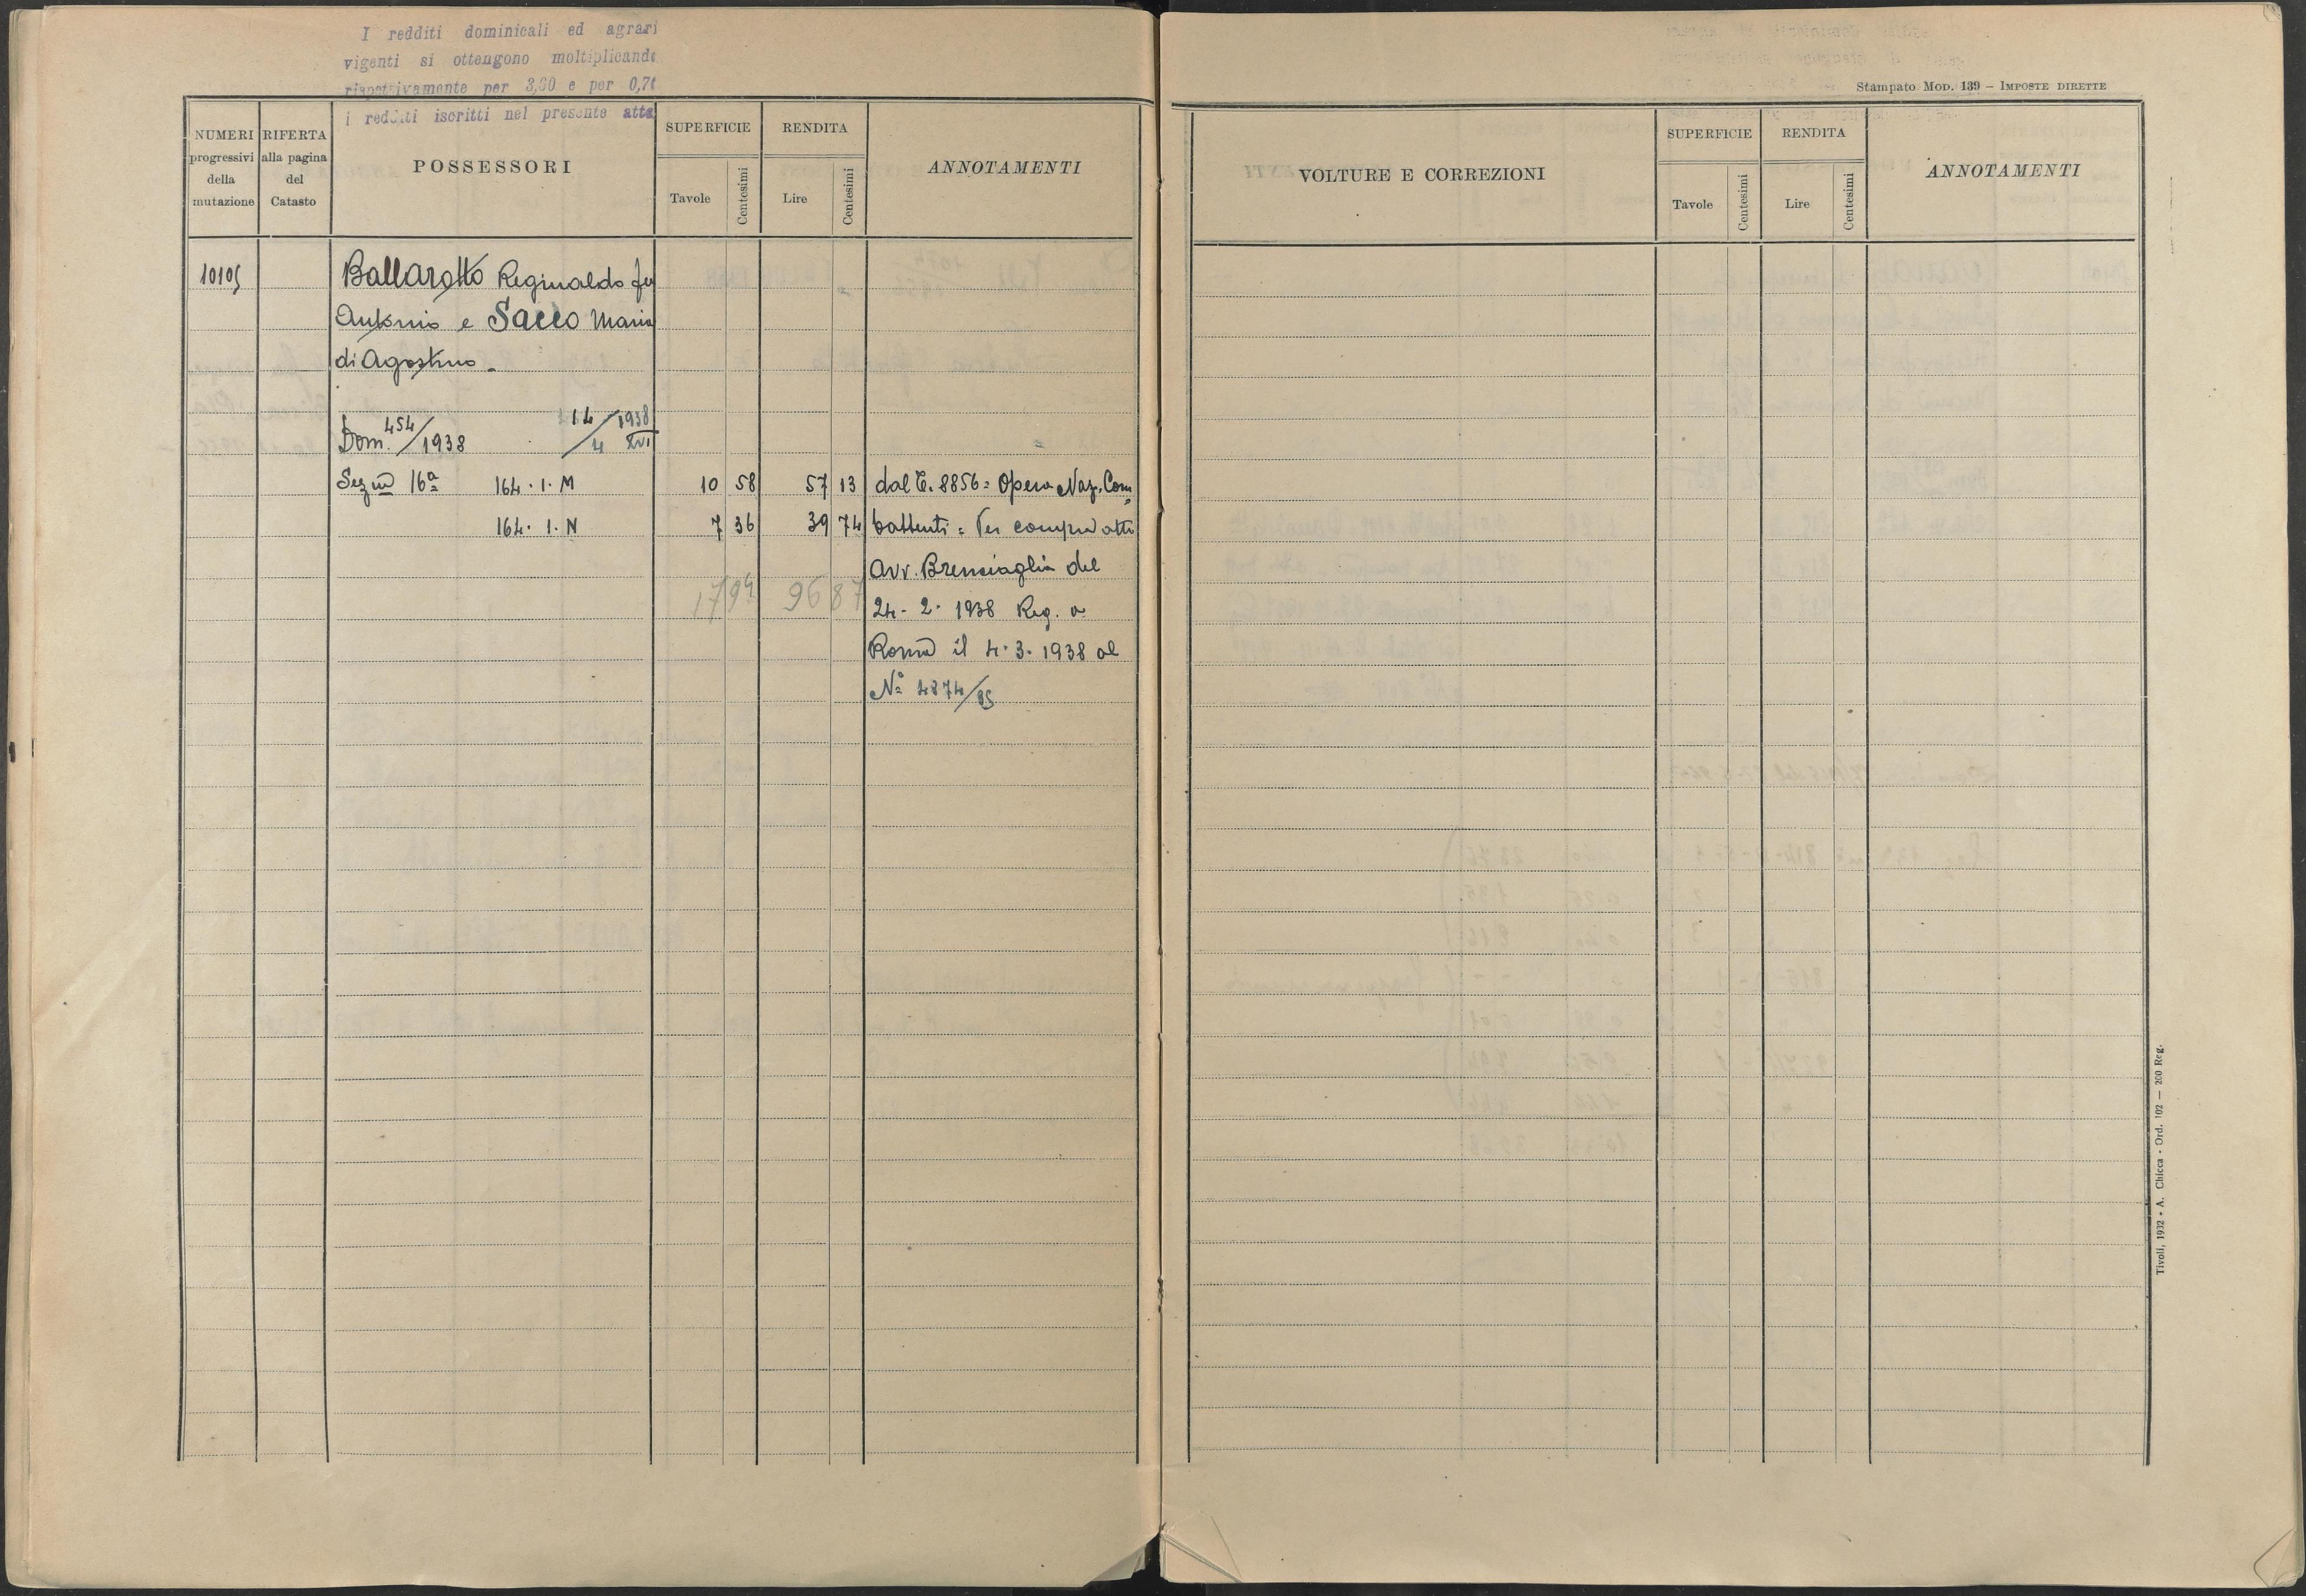 I redditi dominicali ed agrari
vigenti si ottengono moltiplicando
rispettivamente per 3,60 e per 0,70
i redditi iscritti nel presente atto
NUMERI
progressivi
della
mutazione
RIFERTA
alla pagina
del
Catasto
POSSESSORI
SUPERFICIE
Tavole
Centesimi
RENDITA
Lire
Centesimi
ANNOTAMENTI
10105
Ballarotto Reginaldo fu
Antonio e Sacco Maria
di Agostino -
Dom. 454/1938 14/4 1938 XVI
Sez. 16ª 164 · 1 · M 10 58 57 13 dal C. 8856 = Opera Naz. Com=
164 · 1 · N 7 36 39 74 battenti = Per compra atti
Avv. Brenciaglia del
17 94 96 87 24 - 2 - 1938 Reg. a
Roma il 4 · 3 · 1938 al
Nº 4874/85
Stampato Mod. 139 – Imposte dirette
VOLTURE E CORREZIONI
SUPERFICIE
Tavole
Centesimi
RENDITA
Lire
Centesimi
ANNOTAMENTI
Tivoli, 1932 - A. Chicca - Ord. 102 — 200 Reg.